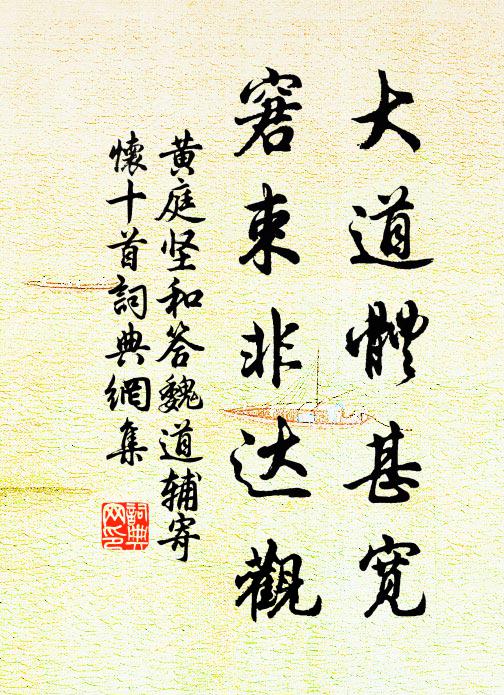 大道體甚寬
窘束非达觀
黄庭坚和答魏道辅寄
懷十首詞典網集
詞典
网印